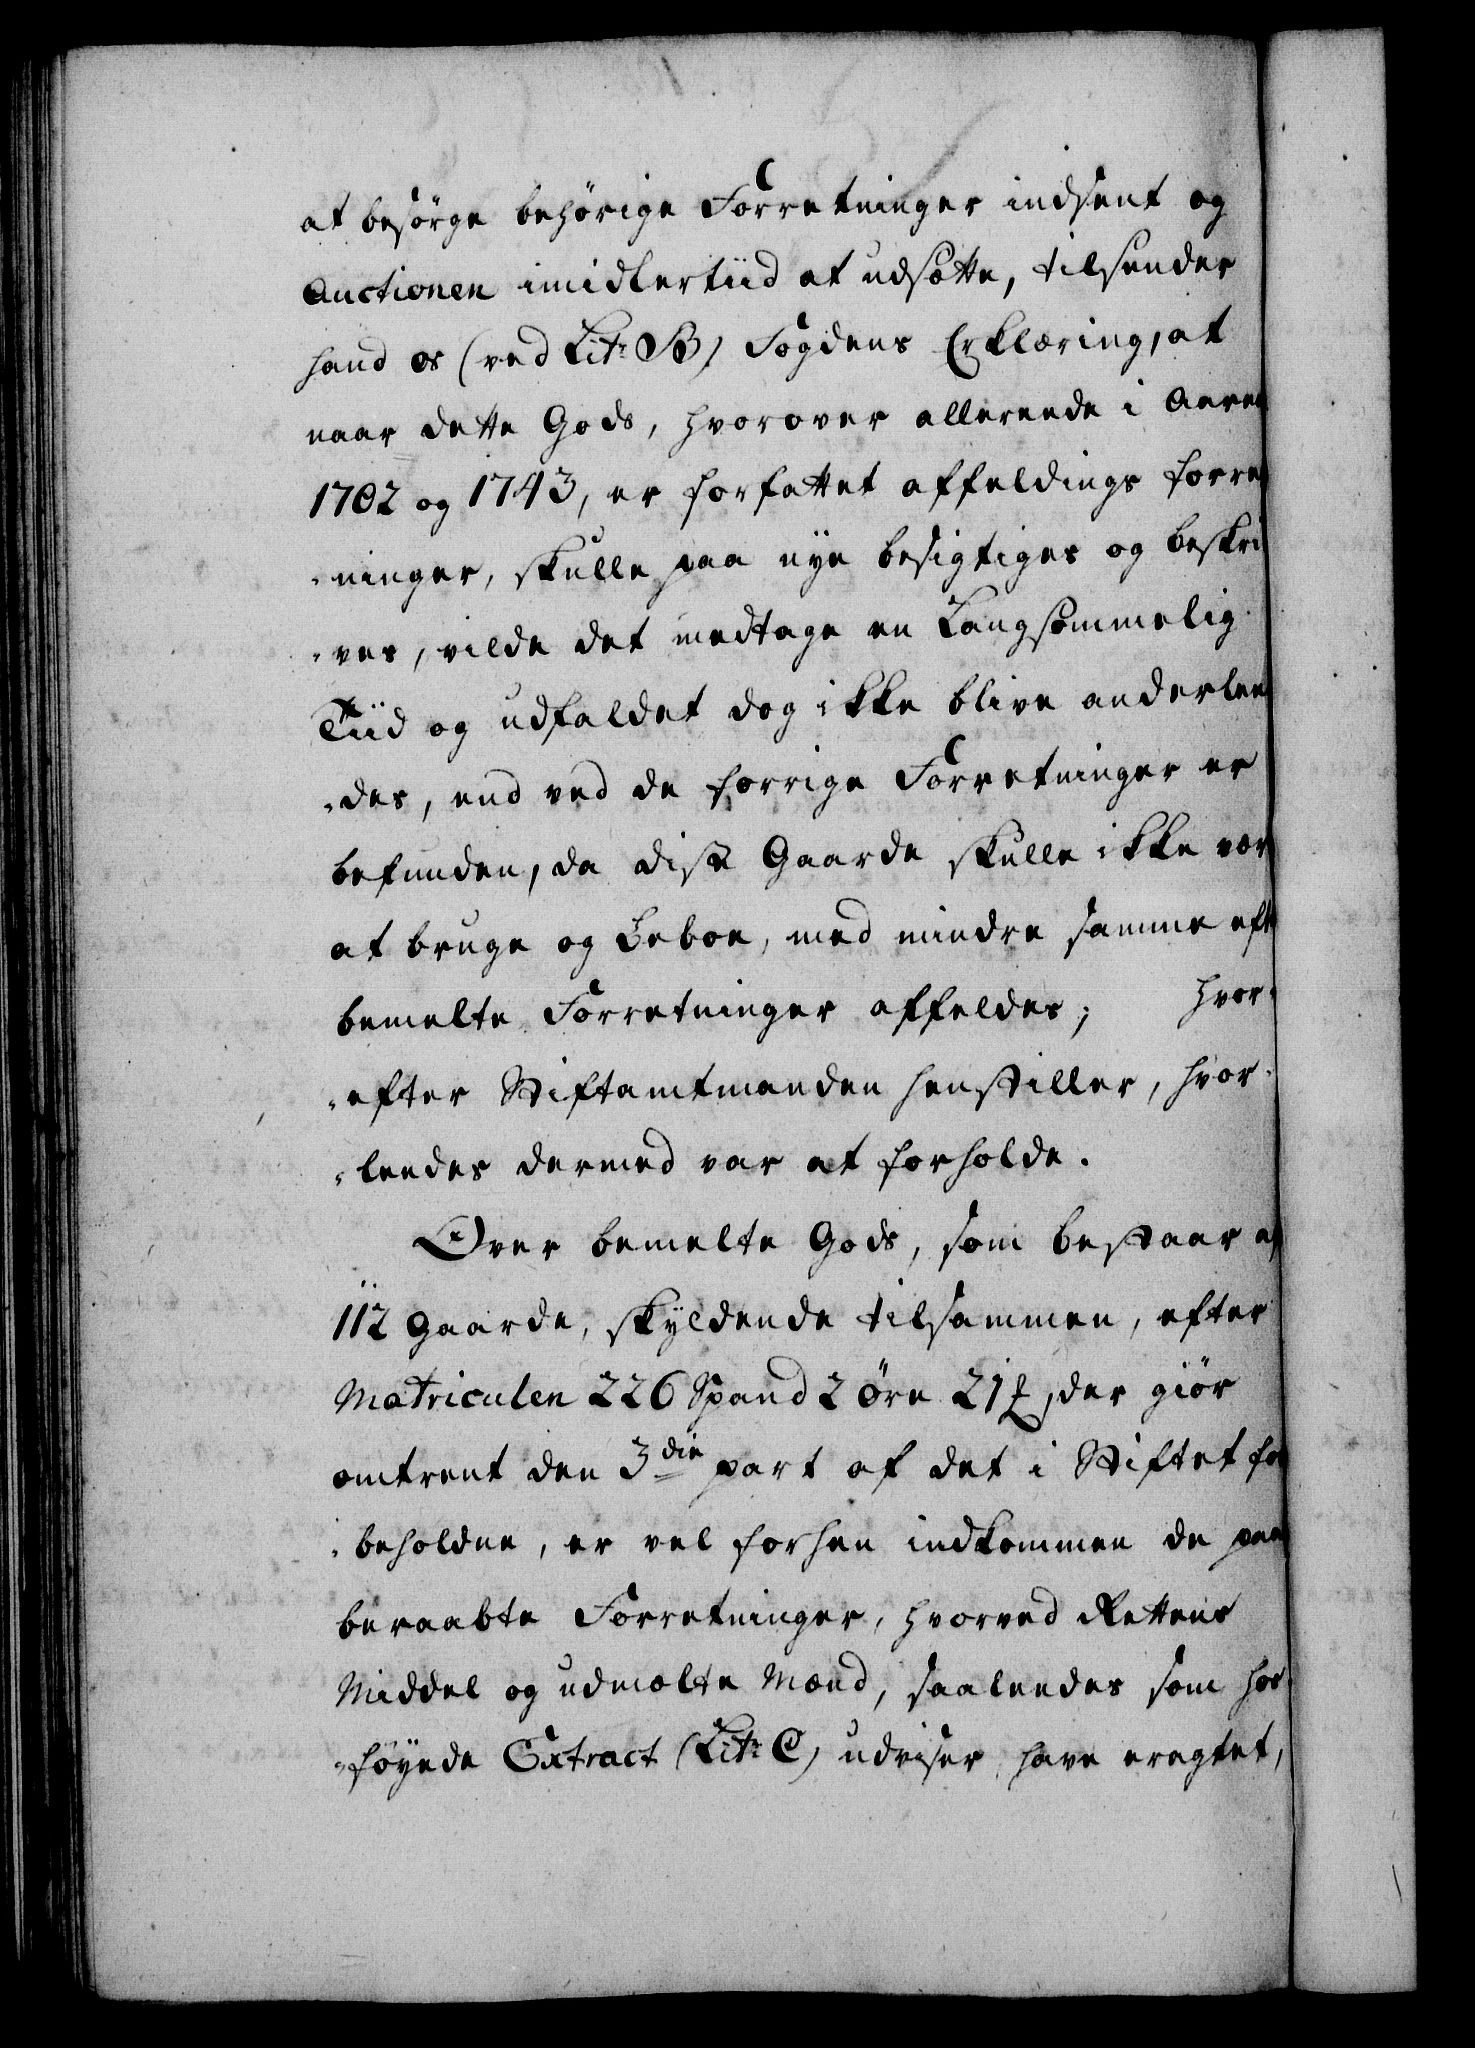 at besørge behørige Forretninger indsent og
Auctionen imidlertiid at udsætte, tilsender
hand os (ved Litr B) Fogdens Erklæring, at
naar dette Gods, hvorover allereede i Aaret
1702 og 1743, er forfattet affeldings forret
-ninger, skulle paa nye besigtiges og beskri
-ves, vilde det medtage en Langsommelig
Tiid og udfaldet dog ikke blive anderleen
-des, end ved de forrige Forretninger er
befunden, da disse Gaarde skulle ikke vær
at bruge og Beboe, med mindre samme eft
bemelte Forretninger affeldes; hvor-
-efter Stiftamtmanden henstiller, hvor-
-leedes dermed var at forholde.
Over bemelte Gods, som bestaar af
112 Gaarde, skyldende tilsammen, efter
Matriculen 226 Spand 2 øre 21 , der giør
omtrent den 3die part af det i Stiftet for
-beholdne, er vel forhen indkommen de paa
beraabte Forretninger, hvorved Rettens
Middel og udmælte Mænd, saaleedes som hos
-føyede Extract (Litr C) udviser, have eragtet,